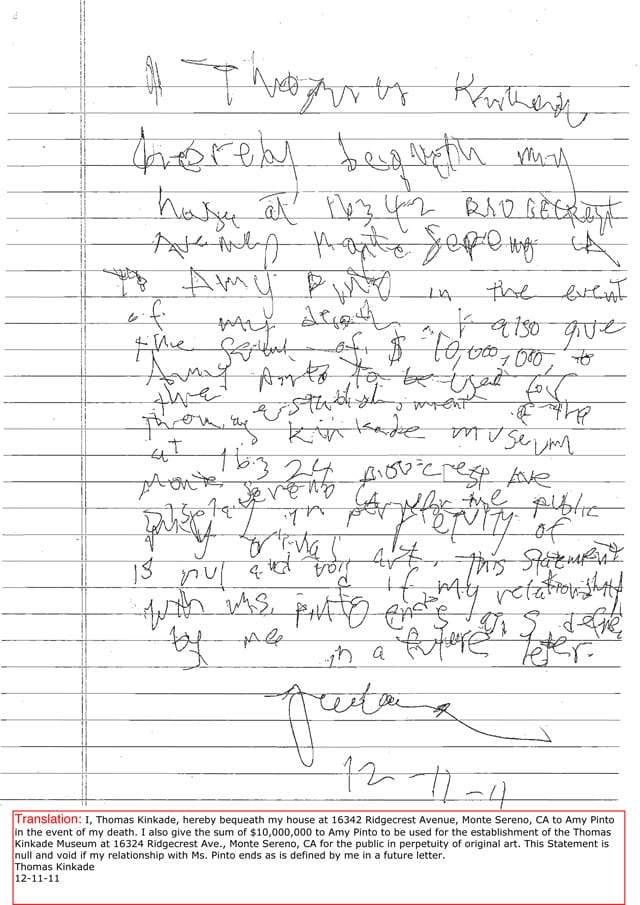 I Thomas Kinkade
hereby bequeth my
house at 16342
Avenue Monte Sereno CA
to Amy Pinto in the event
of my death. I also give
the sum of $ 10,000,000, to
Amy Pinto to be used for
the establishment of the
Thomas Kinkade museum
at 16324 Ave
Monte Sereno CA for the public
in perpetuity of
original art. This Statement
is nul and void if my relationship
with Ms. Pinto ends as is define
by me in a future letter.
12-11-11
Translation: I, Thomas Kinkade, hereby bequeath my house at 16342 Ridgecrest Avenue, Monte Sereno, CA to Amy Pinto
in the event of my death. I also give the sum of $10,000,000 to Amy Pinto to be used for the establishment of the Thomas
Kinkade Museum at 16324 Ridgecrest Ave., Monte Sereno, CA for the public in perpetuity of original art. This Statement is
null and void if my relationship with Ms. Pinto ends as is defined by me in a future letter.
Thomas Kinkade
12-11-11